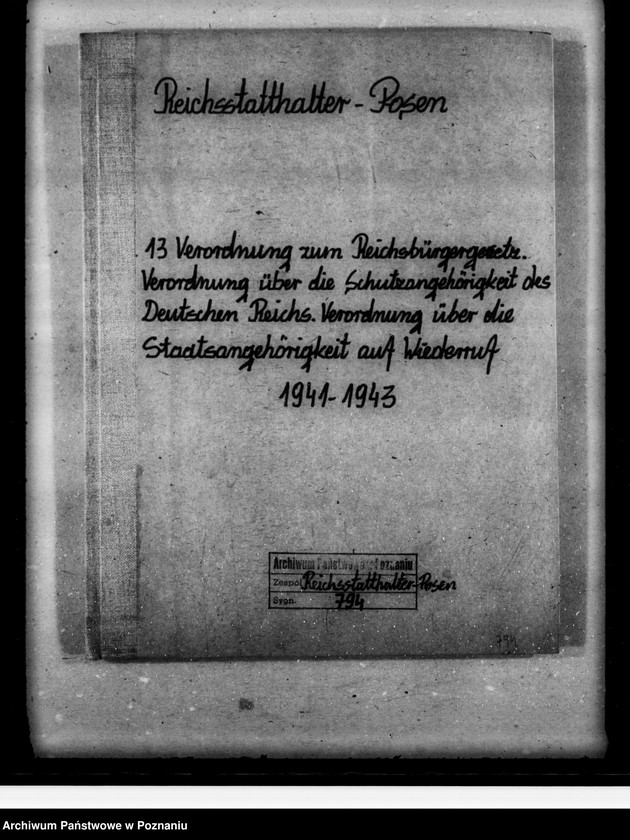 Reichsstatthalter - Posen
13 Verordnung zum Reichsbürgergesetz.
Verordnung über die Schutzangehörigkeit des
Deutschen Reichs. Verordnung über die
Staatsangehörigkeit auf Wiederruf
1941-1943
Archiwum Państwowe w Poznaniu
Zespół Reichsstatthalter-Posen
Sygn. 794
794
Archiwum Państwowe w Poznaniu